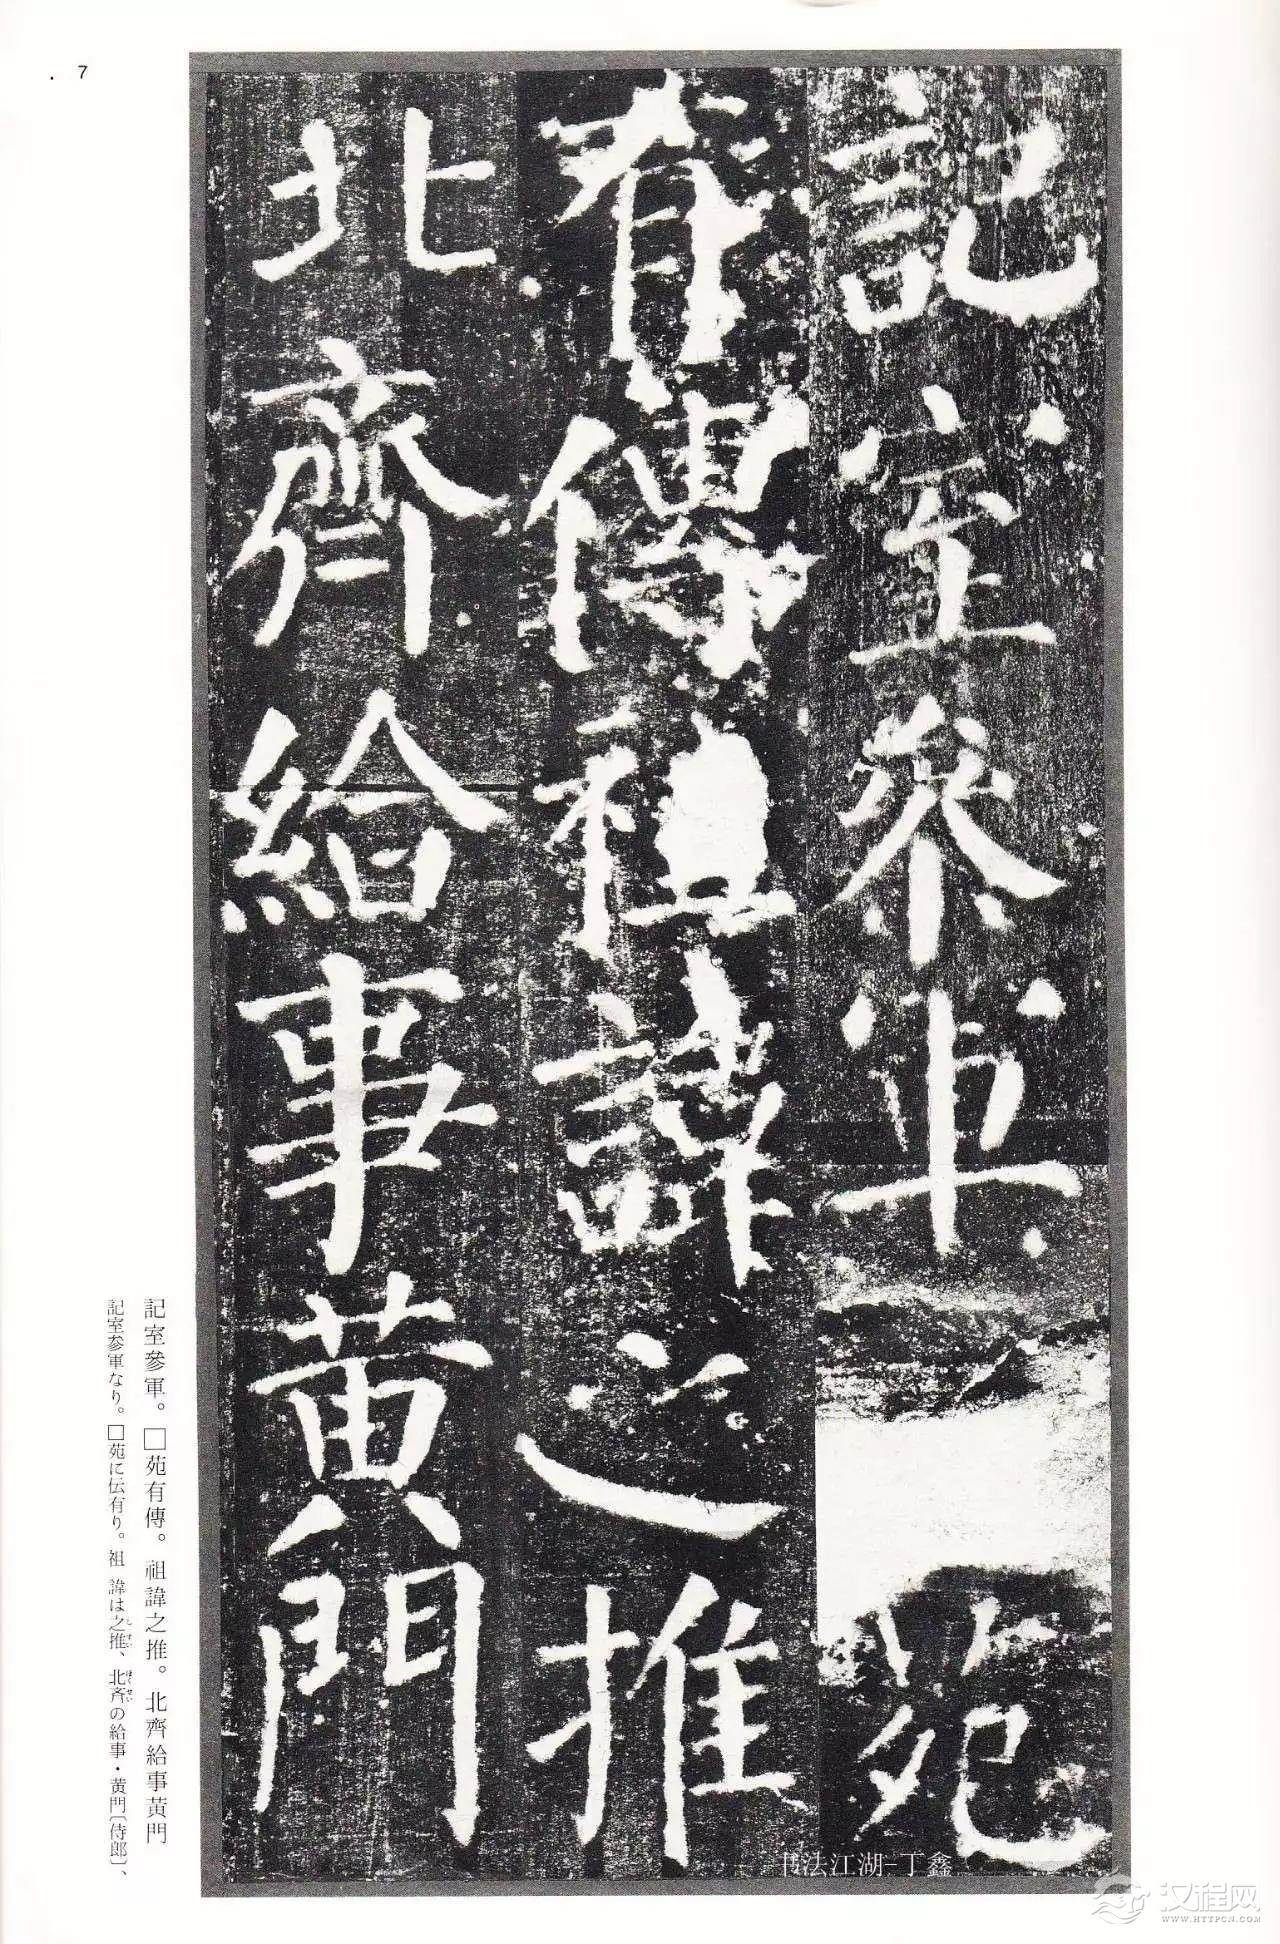 7
記室參軍
苑
有傳祖諱之推
北齊給事黃門
記室參軍。□苑有傳。祖諱之推。北齊給事黃門
記室参軍なり。□苑に伝有り。祖 諱は之推、北斉の給事・黄門〔侍郎〕、
书法江湖-丁鑫
汉程网
WWW.HTTPCN.COM